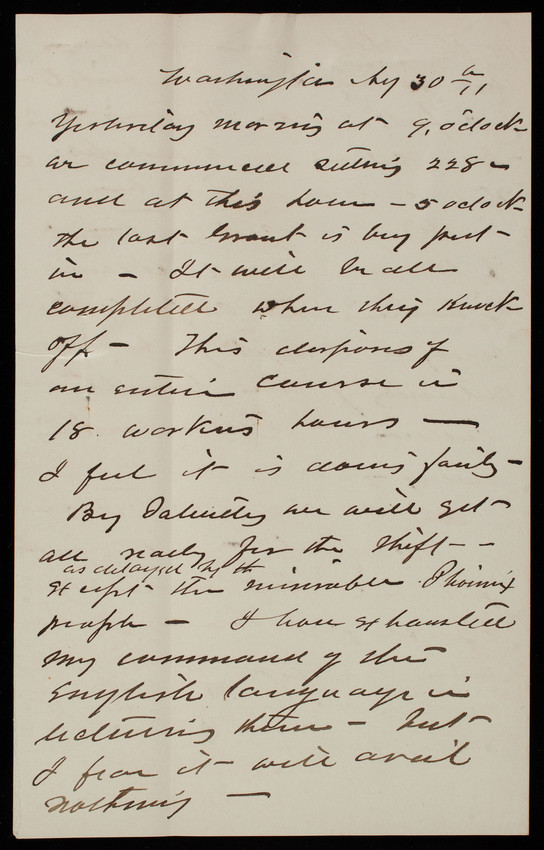 Washington Aug 30th
Yesterday morning at 9, oclock
we commenced setting 228
and at this hour – 5 oclock
the last Grout is being put
in – It will be all
completed when they knock
off – This disposes of
an entire Course in
18. working hours —
I feel it is doing fairly –
By Saturday we will get
all ready for the shift –
as delayed by the
except the miserable Phoenix
people – I have exhausted
my command of the
English language in
lecturing them – but
I fear it will avail
nothing —